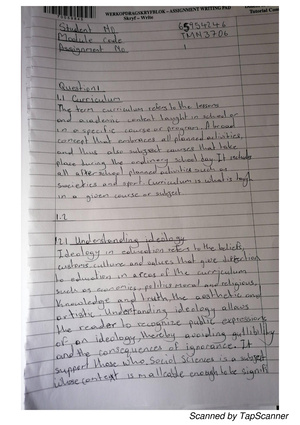 WERKOPDRAGSKRYFBLOK – ASSIGNMENT WRITING PAD
Skryf – Write
Tutorial Cust
Student No.
Module Code TMN3706
Assignment No. 1
Question 1
1.1 Curriculum
The term curriculum refers to the lessons
and academic content taught in school or
in a specific course or program. A broad
concept that embraces all planned activities,
and thus also subject courses that take
place during the ordinary school day. It includes
all after school planned activities such as
societies and sport. Curriculum is what is taught
in a given course or subject.
1.2
1.2.1 Understanding ideology
Ideology in education refers to the beliefs,
customs, culture and values that give direction
to education in areas of the curriculum
such as economics, politics, moral and religious,
Knowledge and truth, the aesthetic and
artistic. Understanding ideology allows
the reader to recognize public expressions
of an ideology, thereby avoiding gullibility
and the consequences of ignorance. It
support those who Social Sciences is a subject
whose content is malleable enough to be signifi
Scanned by TapScanner